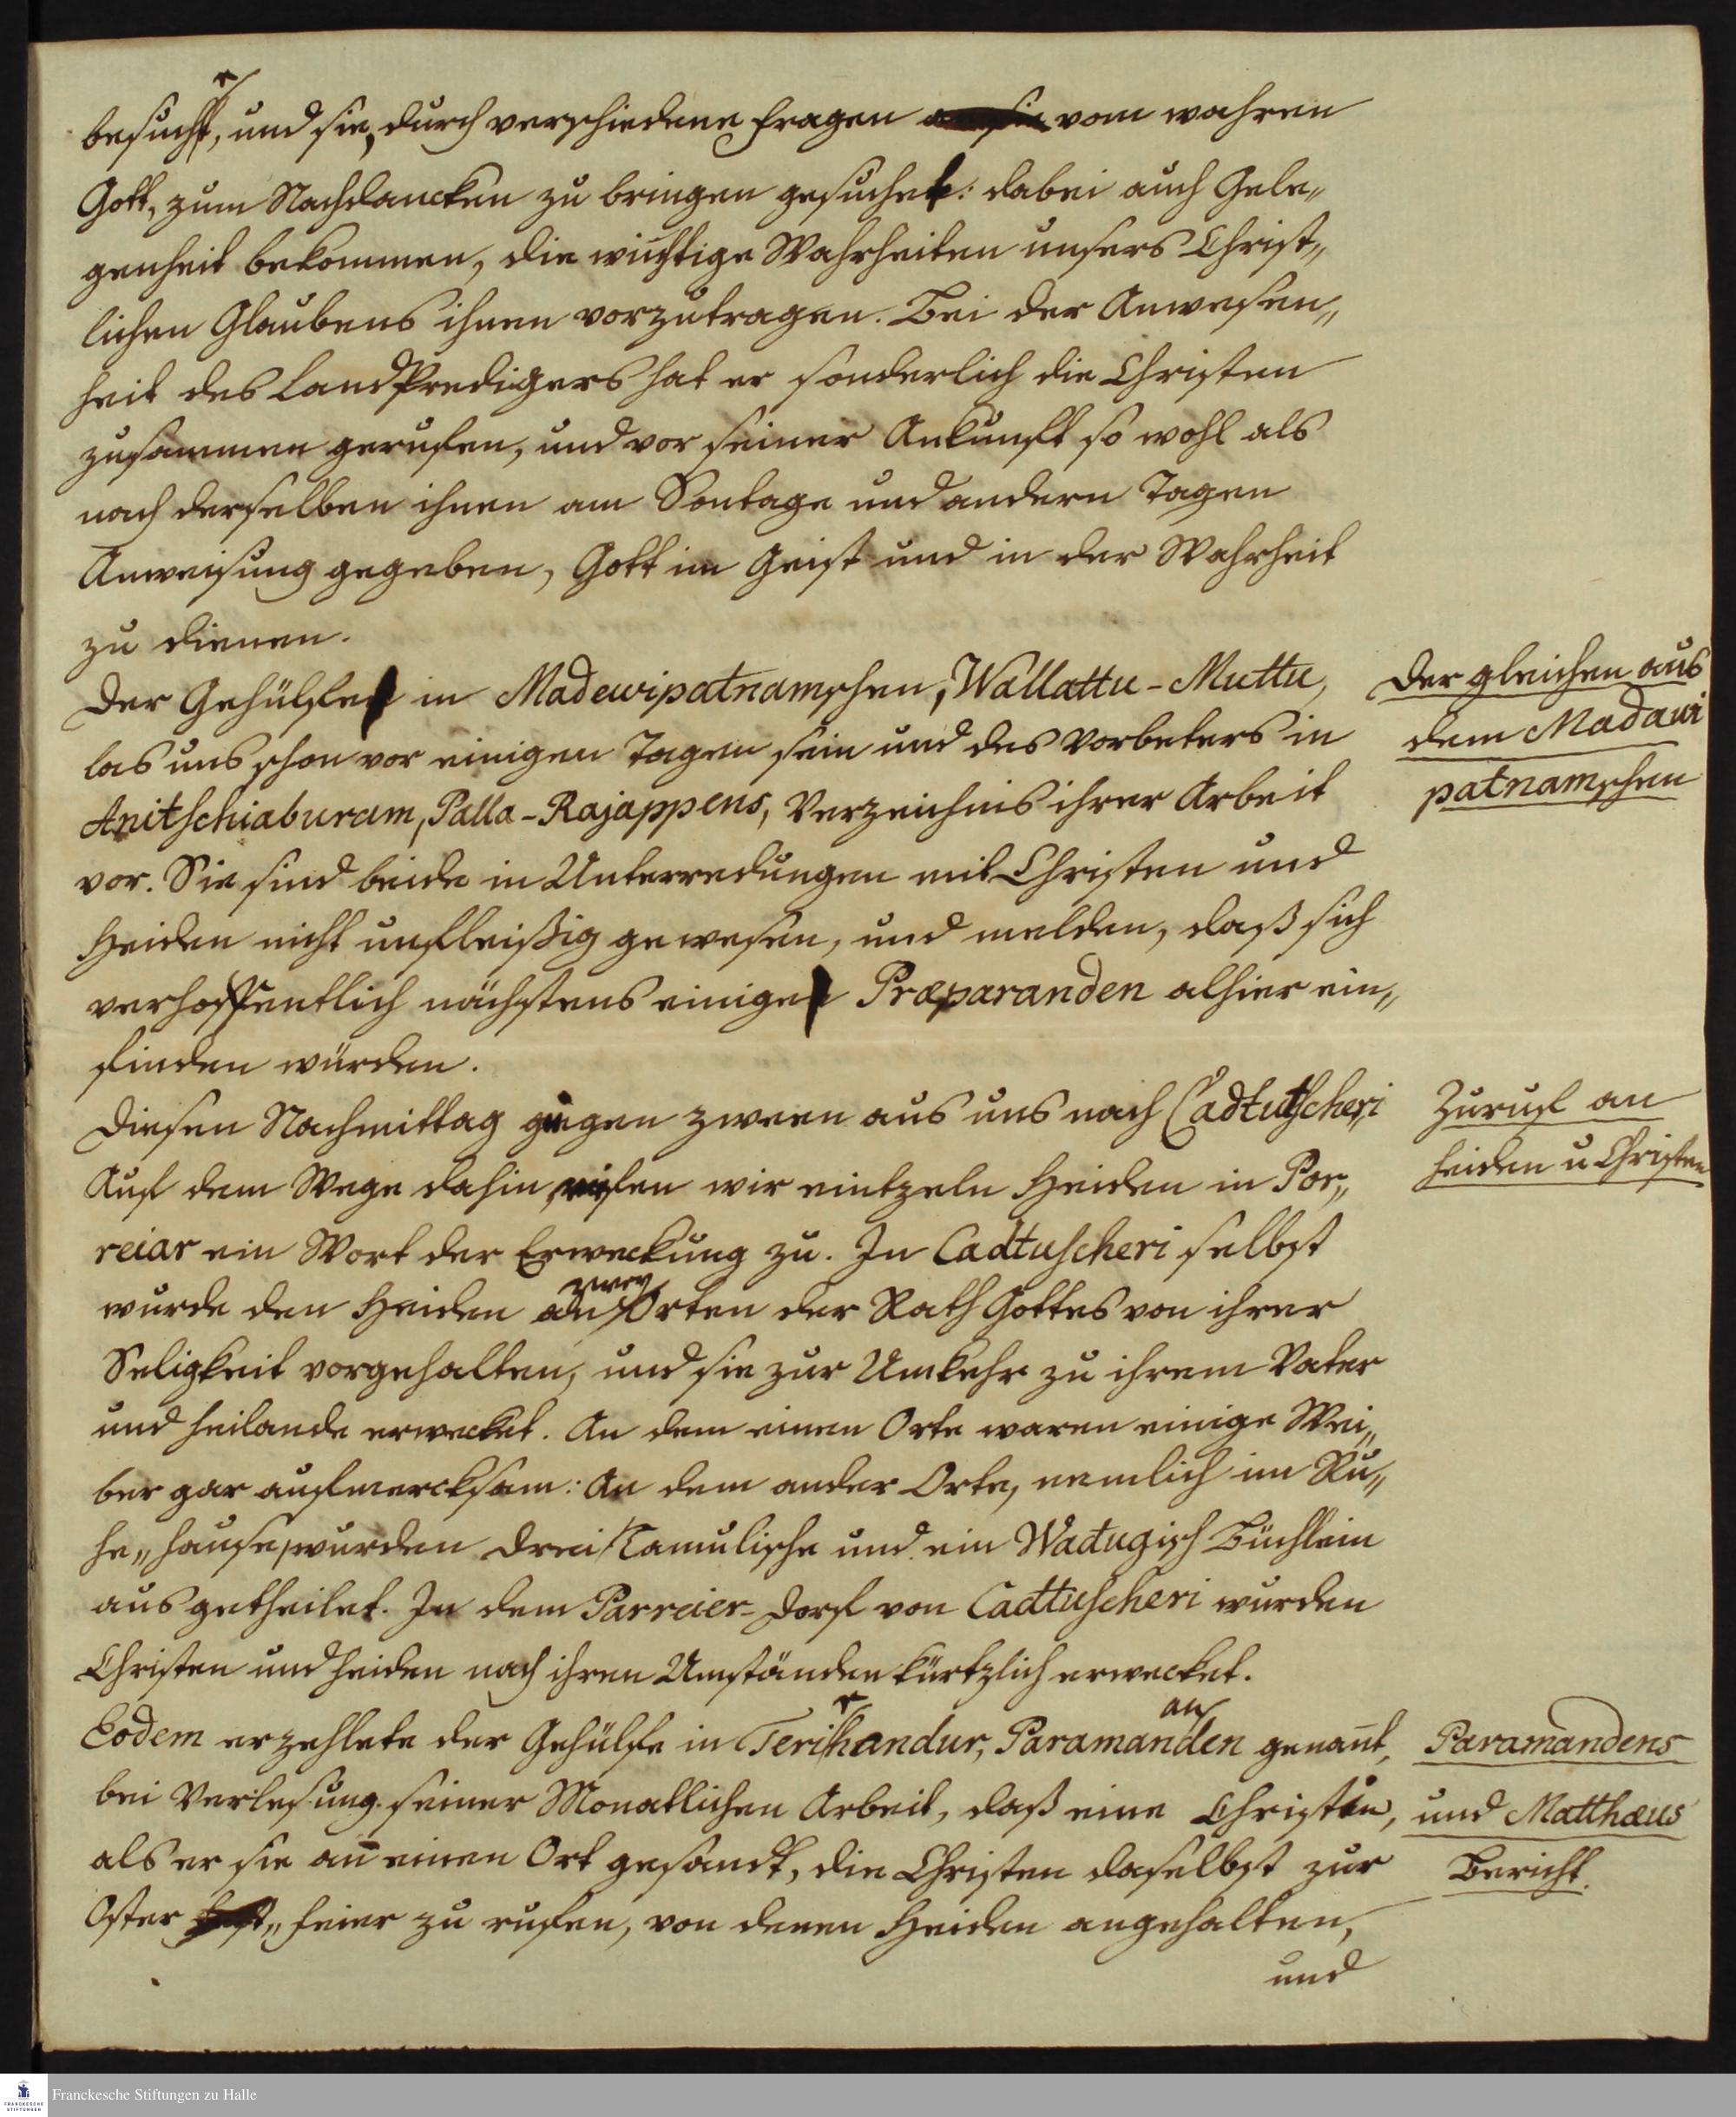 besucht, und sie, durch verschiedene Fragen vom wahren
Gott, zum Nachdancken zu bringen gesuchet: dabei auch Gele„
genheit bekommen, die wichtige Wahrheiten unsers Christ„
lichen Glaubens ihnen vorzutragen. Bei der Anwesen„
heit des LandPredigers hat er sonderlich die Christen
zusammen gerufen, und vor seiner Ankunft so wohl als
nach derselben ihnen am Sontage und andern Tagen
Anweisung gegeben, Gott im Geist und in der Wahrheit
zu dienen.
Der Gehülfe in Madewipatnamschen, Wallattu-Muttu,
las uns schon vor einigen Tagen sein und des Vorbeters in
Anitschiaburam, Palla-Rajappens, Verzeichnis ihrer Arbeit
vor. Sie sind beide in Unterredungen mit Christen und
Heiden nicht unfleißig gewesen, und melden, daß sich
verhoffentlich nächstens einige Præparanden alhier ein„
finden würden.
Der gleichen aus
dem Madawi
patnamschen
Diesen Nachmittag gingen zween aus uns nach Cadtutscheri
Auf dem Wege dahin riefen wir eintzeln Heiden in Por„
reiar ein Wort der Erweckung zu. In Cadtuscheri selbst
wurde den Heiden an zwey Orten der Rath Gottes von ihrer
Seligkeit vorgehalten, und sie zur Umkehr zu ihrem Vater
und Heilande erwecket. An dem einen Orte waren einige Wei„
ber gar aufmercksam: An dem ander Orte, nemlich im Ru„
he„hause, wurden drei Tamulische und ein Wadugisch Büchlein
ausgetheilet. In dem Parreier-Dorf von Cadtuscheri wurden
Christen und Heiden nach ihren Umständen kürtzlich erwecket.
Zuruf an
Heiden u Christen
Eodem erzehlete der Gehülfe in Terikhandur, Paramanden genant,
bei Verlesung seiner Monatlichen Arbeit, daß eine Christin,
als er sie an einen Ort gesandt, die Christen daselbst zur
Oster„feier zu rufen, von denen Heiden angehalten,
und
Paramandens
und Matthæus
Bericht.
Franckesche Stiftungen zu Halle